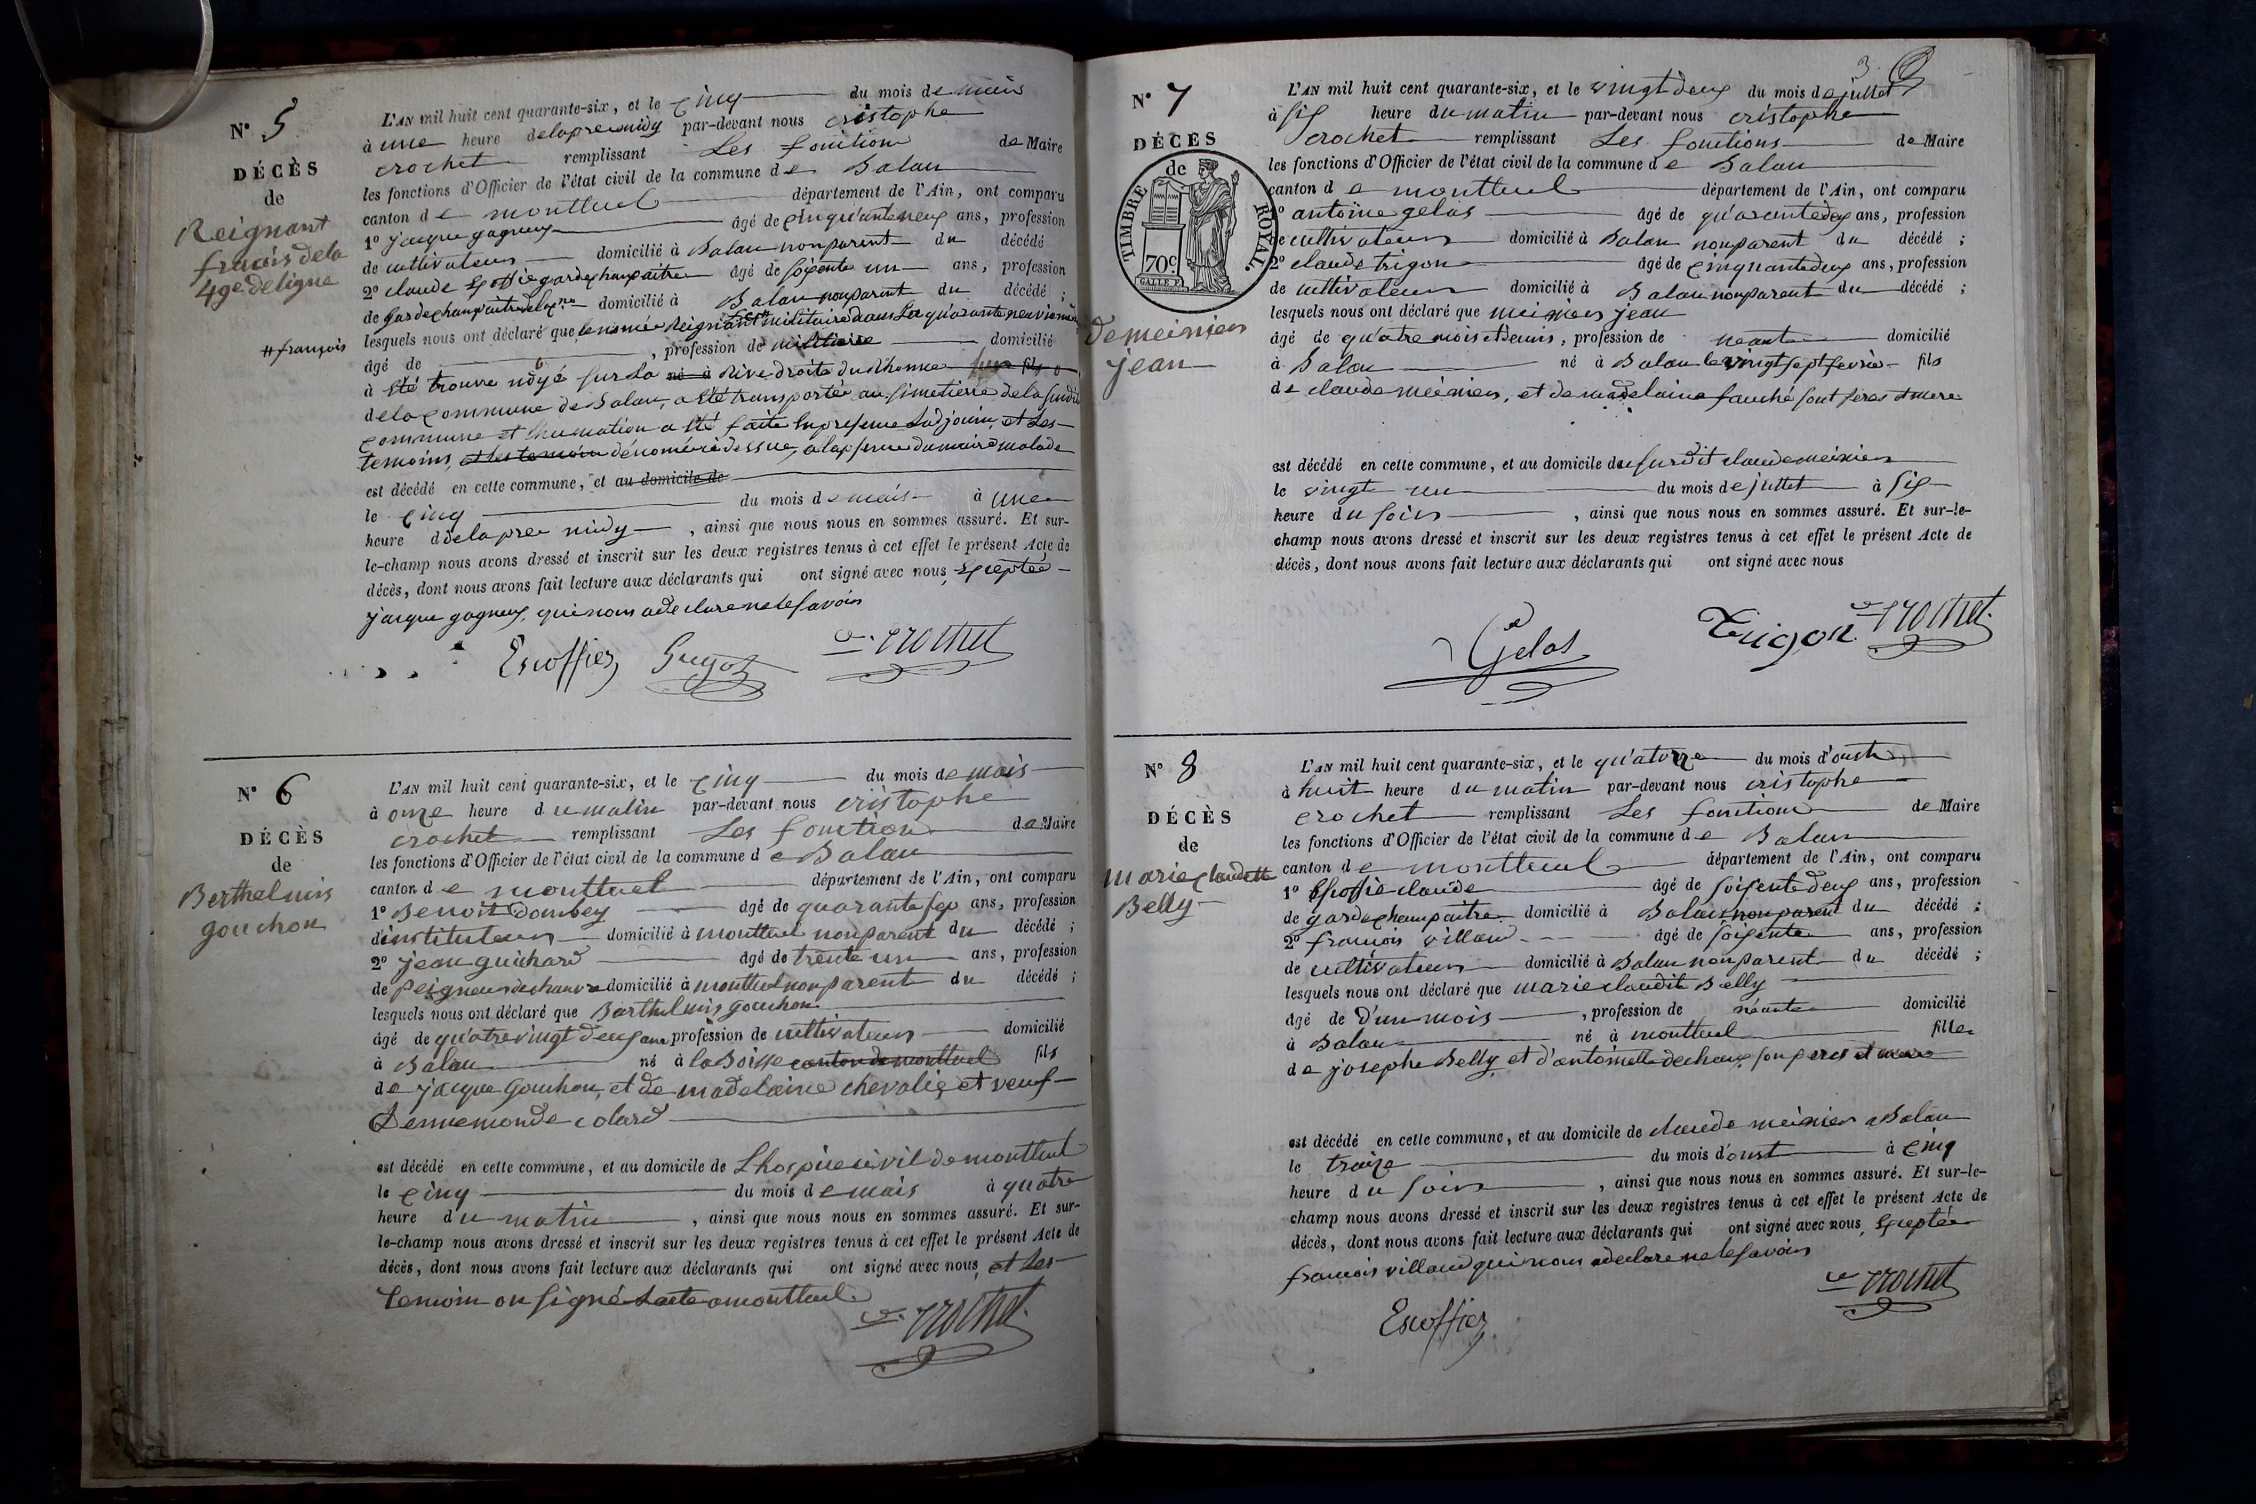 N° 5
DÉCÈS
de
Reignant
francis dela
49e de ligne
# françois
L'AN mil huit cent quarante-six, et le cinq du mois de mais
à une heure delapremidy par-devant nous cristophe
crochet remplissant Les fonition de Maire
les fonctions d'Officier de l'état civil de la commune de Balan
canton de montluel département de l'Ain, ont comparu
1° jacque gagneux âgé de cinquanteneuf ans, profession
de cultivateur domicilié à Balan nonparent du décédé
2° claude Escoffie gardechanpaitre âgé de soixente un ans, profession
de gardechampaitre domicilié à Balan nonparent du décédé ;
lesquels nous ont déclaré que lenomée Reignant militaire dans Le quarante neuvieme
âgé de , profession de militaire domicilié
à été trouve noyé sur La né à Rive droite du Rhonne fils
dela commune de Balan, a été transportée au simetiere dela susdite
commune et lhumation a été faite Enpresence Ladjoin, et Les
temoins, et les temoins dénomérédessue, alapsence dumaire malade
est décédé en cette commune, et au domicile de
le cinq du mois de mais à une
heure ddelapre midy , ainsi que nous nous en sommes assuré. Et sur-
le-champ nous avons dressé et inscrit sur les deux registres tenus à cet effet le présent Acte de
décès, dont nous avons fait lecture aux déclarants qui ont signé avec nous, Exceptée
jacque gagneux, quinous adeclare nelesavoir
Escoffier Guyot Crochet
N° 6
DÉCÈS
de
Berthelmis
gouchon
L'AN mil huit cent quarante-six, et le cinq du mois de mais
à onze heure du matin par-devant nous cristophe
crochet remplissant Les fonction de Maire
les fonctions d'Officier de l'état civil de la commune de Balan
canton de montluel département de l'Ain, ont comparu
1° Benoit Dombey âgé de quarante sep ans, profession
d'instituteur domicilié à montluel nonparent du décédé ;
2° jean guichard âgé de trente un ans, profession
de peigneur dechanvre domicilié à montluel nonparent du décédé ;
lesquels nous ont déclaré que Barthelmis gouchon
âgé de quatrevingt deux ans profession de cultivateur domicilié
à Balan né à la Boisse canton de montluel fils
de jacque gouchon, et de madelaine chevalie, et veuf
Dennemonde colard
est décédé en cette commune, et au domicile de Lhospice civil de montluel
le cinq du mois de mais à quatre
heure du matin , ainsi que nous nous en sommes assuré. Et sur-
le-champ nous avons dressé et inscrit sur les deux registres tenus à cet effet le présent Acte de
décès, dont nous avons fait lecture aux déclarants qui ont signé avec nous, et Les
temoin on signé Lacte amontluel
Crochet
3
N° 7
DÉCÈS
de
TIMBRE ROYAL
70 c
GALLE F.
demeinier
jean
L'AN mil huit cent quarante-six, et le vingt deux du mois de juillet
à six heure du matin par-devant nous cristophe
crochet remplissant Les fonitions de Maire
les fonctions d'Officier de l'état civil de la commune de Balan
canton de montluel département de l'Ain, ont comparu
1° antoine gelas âgé de quarantedeux ans, profession
de cultivateur domicilié à Balan nonparent du décédé ;
2° claude trigon âgé de cinquantedeux ans, profession
de cultivateur domicilié à Balan nonparent du décédé ;
lesquels nous ont déclaré que meinier jean
âgé de quatre mois et demis, profession de neante domicilié
à Balan né à Balan le vingt sept fevrie fils
de claude meinier, et de madelaine fauché sont peres et mere
est décédé en cette commune, et au domicile de susdit claude meinier
le vingt un du mois de juillet à six
heure du soir , ainsi que nous nous en sommes assuré. Et sur-le-
champ nous avons dressé et inscrit sur les deux registres tenus à cet effet le présent Acte de
décès, dont nous avons fait lecture aux déclarants qui ont signé avec nous
Gelas Trigon Crochet
N° 8
DÉCÈS
de
marie claudette
Belly
L'AN mil huit cent quarante-six, et le quatorze du mois d'oust
à huit heure du matin par-devant nous cristophe
crochet remplissant Les fonitions de Maire
les fonctions d'Officier de l'état civil de la commune de Balan
canton de montluel département de l'Ain, ont comparu
1° Escoffie claude âgé de soixente deux ans, profession
de gardechampaitre domicilié à Balan nonparent du décédé ;
2° francois villand âgé de soixente ans, profession
de cultivateur domicilié à Balan nonparent du décédé ;
lesquels nous ont déclaré que marie claudite Belly
âgé de d'un mois , profession de néante domicilié
à Balan né à montluel fille
de josephe Belly, et d'antoinette dechaux son peres et mere
est décédé en cette commune, et au domicile de claude meinier a Balan
le traize du mois d'oust à cinq
heure du soir , ainsi que nous nous en sommes assuré. Et sur-le-
champ nous avons dressé et inscrit sur les deux registres tenus à cet effet le présent Acte de
décès, dont nous avons fait lecture aux déclarants qui ont signé avec nous, Exceptée
francois villand qui nous adeclare nelesavoir
Escoffier Crochet